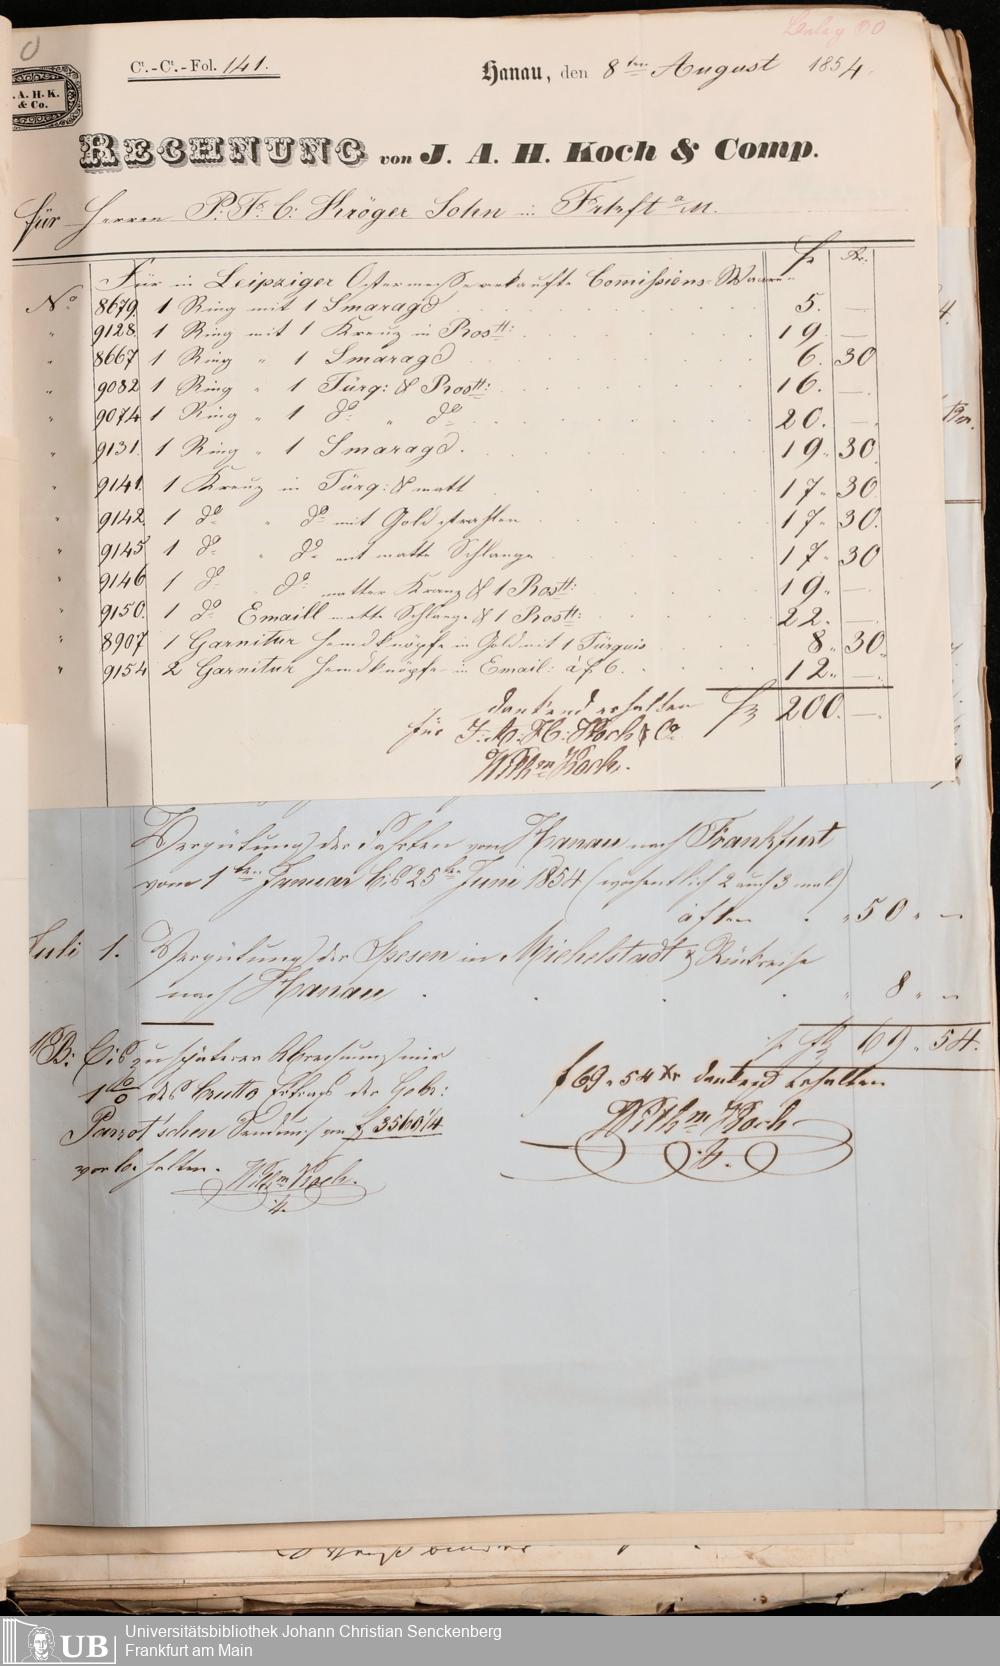 Beleg 90
0
A. H. K.
& Co.
Ct.-Ct.-Fol. 141.
Hanau, den 8ten August 1854.
RECHNUNG von J. A. H. Koch & Comp.
für Herren P. Fr. C. Kröger Sohn in Frkft a/M.
f. Kr.
Für in Leipziger Ostermesse verkaufte Commissions-Waaren
No 8679 1 Ring mit 1 Smaragd 5. —
" 9128 1 Ring mit 1 Kreuz in Rostt: 19 —
" 8667 1 Ring " 1 Smaragd 6. 30
" 9082 1 Ring " 1 Türq: & Rostt: 16. —
" 9074 1 Ring " 1 do " do 20. —
" 9131 1 Ring " 1 Smaragd. 19 " 30
" 9141 1 Kreuz in Türq: & matt 17 " 30
" 9142 1 do " do mit Goldstrahlen 17 " 30.
" 9145 1 do " do mit matte Schlange 17 " 30
" 9146 1 do " do matter Kranz & 1 Rostt: 19 " —
" 9150 1 do Emaill matte Schlange & 1 Rostt: 22 " —
" 8907 1 Garnitur Hemdknöpfe in Gold mit 1 Türquis 8 " 30
" 9154 2 Garnitur Hemdknöpfe in Email: à f 6. 12 " —
dankend erhalten f 200. —
für J. A. H. Koch & Co
Wilhm Koch.
Vergütung der Fahrten von Hanau nach Frankfurt
vom 1ten Januar bis 25ten Juni 1854 (wöchentlich 2 auch 3 mal)
" 50 " —
Juli 1. Vergütung der Spesen in Michelstadt & Rückreise
nach Hanau " 8 " —
f 69 " 54.
NB: Bis zu späterer Abrechnung mir
1 % des brutto Ertrags der Gebr:
Parrot'schen Sendung von f 3560 1/4
vorbehalten.
Wilhm Koch.
f 69 " 54 Kr dankend erhalten
Wilhm Koch
UB
Universitätsbibliothek Johann Christian Senckenberg
Frankfurt am Main